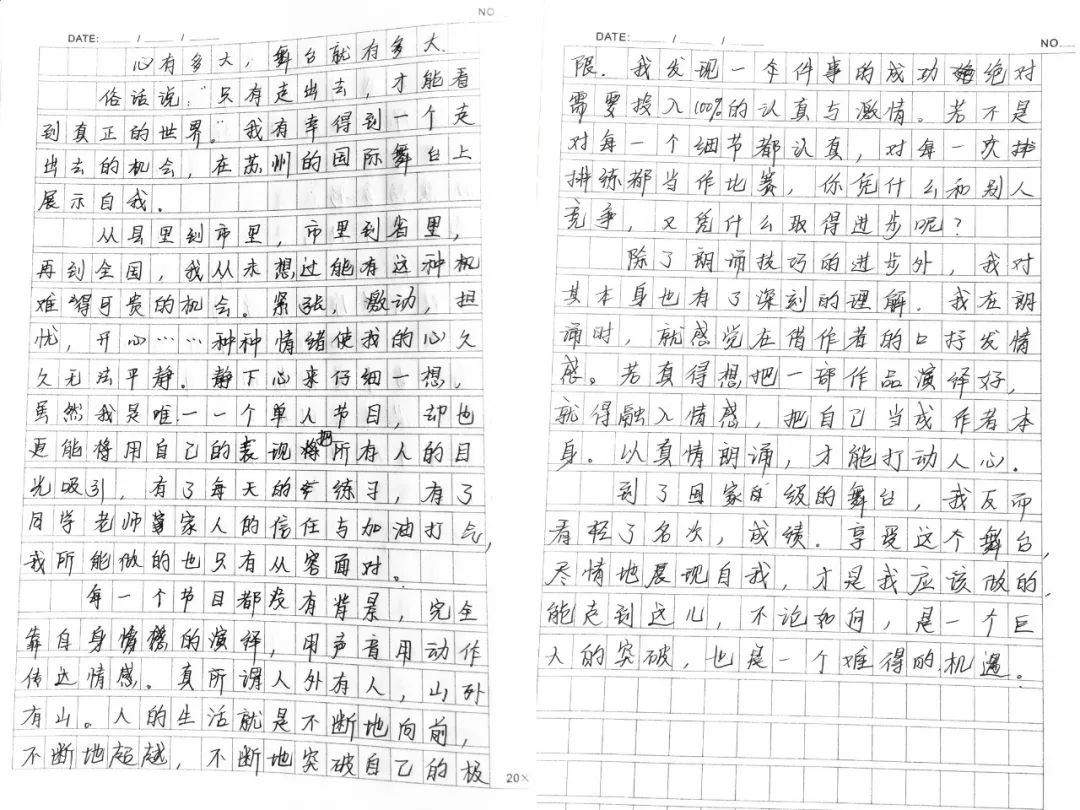 NO
DATE: ___/___/___
心有多大，舞台就有多大.
俗话说："只有走出去，才能看
到真正的世界"我有幸得到一个走
出去的机会，在苏州的国际舞台上
展示自我.
从县里到市里，市里到省里，
再到全国，我从未想过能有这种机
难得可贵的机会。紧张，激动，担
忧，开心……种种情绪使我的心久
久无法平静。静下心来仔细一想，
虽然我是唯一一个单人节目，却也
更能将用自己的表现把所有人的目
光吸引，有了每天的练习，有了
同学老师家人的信任与加油打气，
我所能做的也只有从容面对。
每一个节目都没有背景，完全
靠自身情感的演绎，用声音用动作
传达情感。真所谓人外有人，山外
有山。人的生活就是不断地向前，
不断地超越，不断地突破自己的极
20×
DATE: ___/___/___
NO.
限.我发现一个件事的成功绝对
需要投入100%的认真与激情。若不是
对每一个细节都认真，对每一次排
排练都当作比赛，你凭什么和别人
竞争，又凭什么取得进步呢？
除了朗诵技巧的进步外，我对
其本身也有了深刻的理解.我在朗
诵时，就感觉在借作者的口抒发情
感。若真得想把一部作品演绎好，
就得融入情感，把自己当成作者本
身。以真情朗诵，才能打动人心.
到了国家级的舞台，我反而
看轻了名次，成绩.享受这个舞台，
尽情地展现自我，才是我应该做的
能走到这儿，不论如何，是一个巨
人的突破，也是一个难得的机遇。